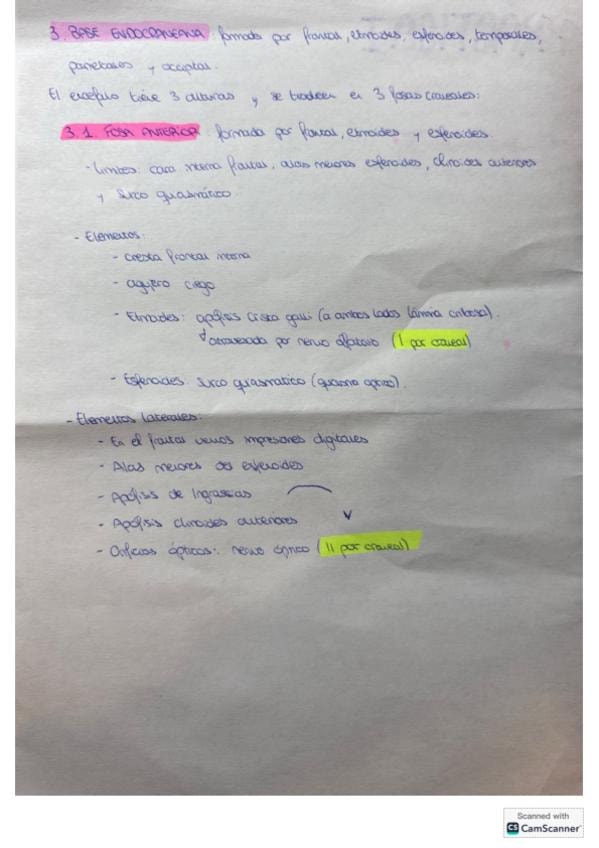 3. BASE ENDOCRANEANA: formada por frontal, etmoides, esfenoides, temporales,
parietales y occipital.
El encéfalo tiene 3 alturas y se traducen en 3 fosas craneales:
3.1. FOSA ANTERIOR: formada por frontal, etmoides y esfenoides.
- Límites: cara interna frontal, alas menores esfenoides, clinoides anteriores
y surco quiasmático.
- Elementos:
- cresta frontal interna
- agujero ciego
- Etmoides: apófisis crista galli (a ambos lados lámina cribosa).
atravesada por nervio olfatorio (I par craneal)
- Esfenoides: surco quiasmático (quiasma óptico).
- Elementos laterales:
- En el frontal vemos impresiones digitales
- Alas menores del esfenoides
- Apófisis de Ingrassias
- Apófisis clinoides anteriores
- Orificios ópticos: nervio óptico (II par craneal)
Scanned with
CS CamScanner